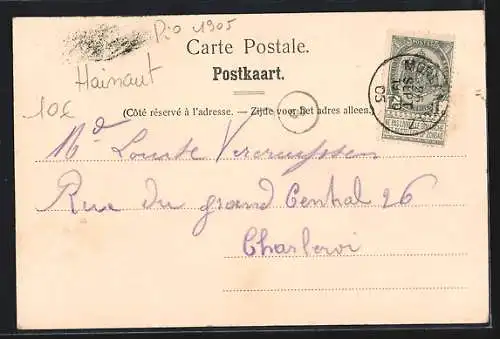 Pio 1905
Carte Postale.
Postkaart.
Hainaut
10€
(Côté réservé à l'adresse. — Zijde voor het adres alleen.)
Md Louise Vercruyssen
Rue du grand Central 26
Charleroi